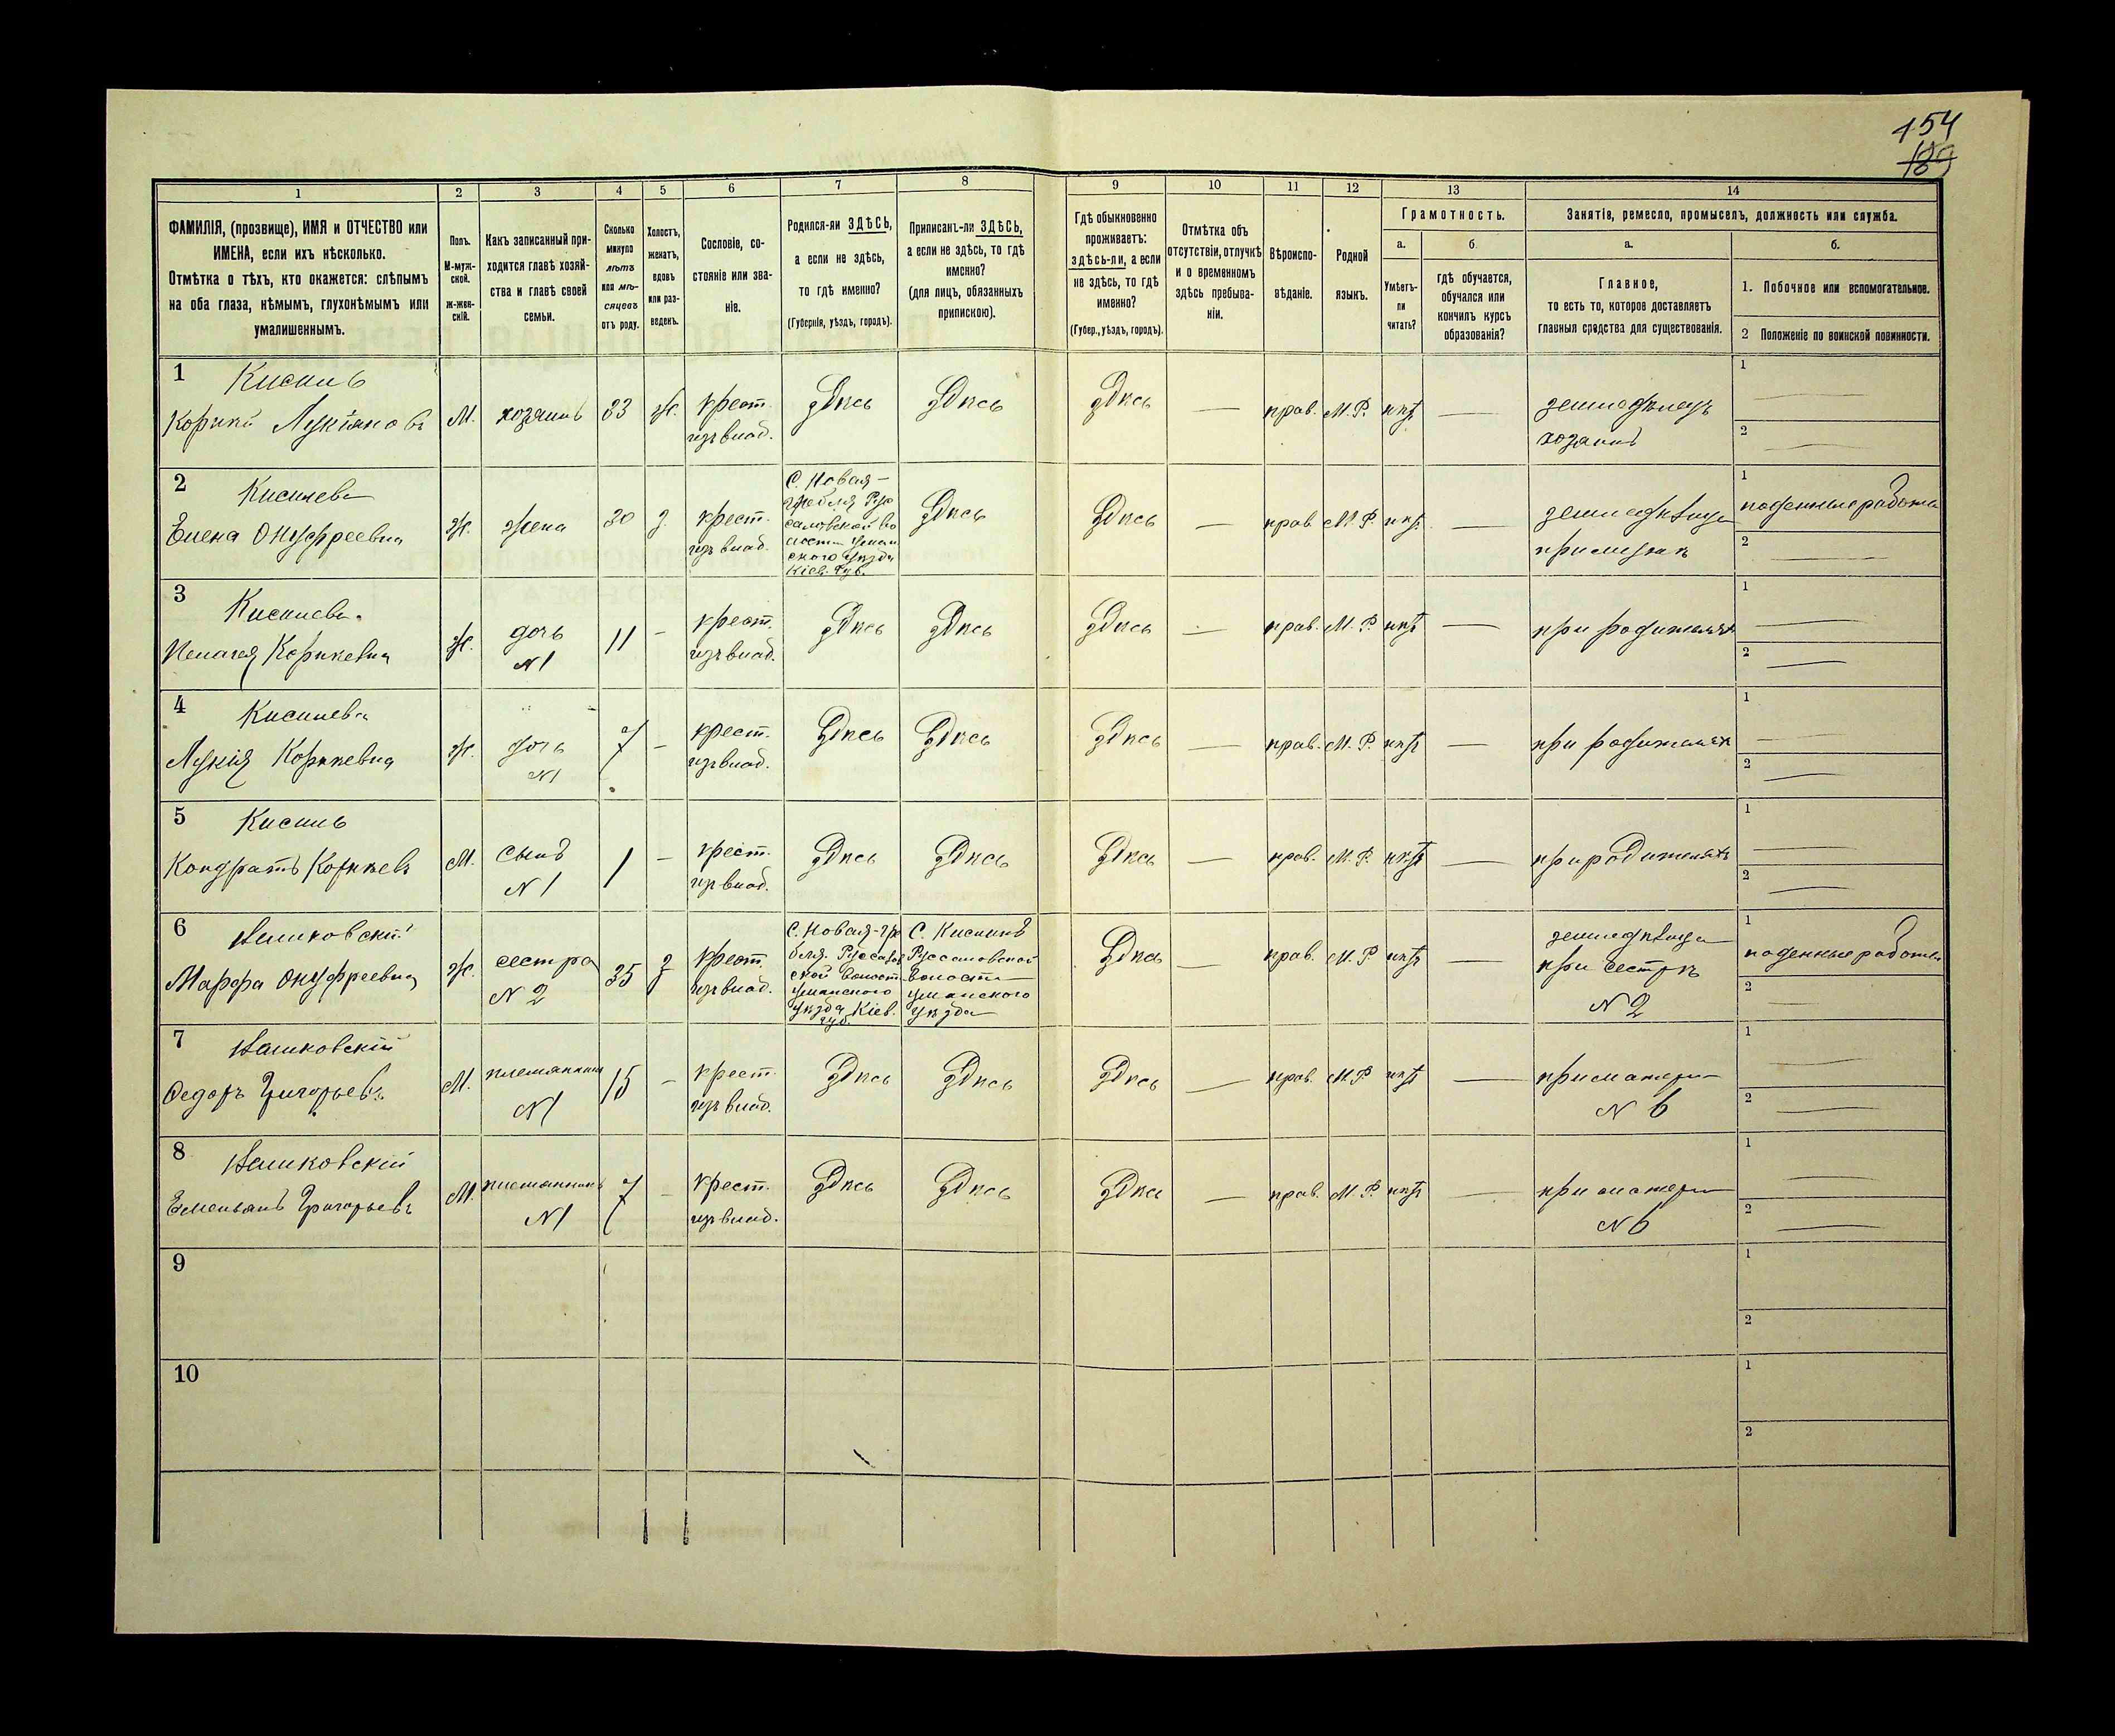 154
189
1
2
3
4
5
6
7
8
9
10
11
12
13
14
ФАМИЛІЯ, (прозвище), ИМЯ и ОТЧЕСТВО или
ИМЕНА, если ихъ нѣсколько.
Отмѣтка о тѣхъ, кто окажется: слѣпымъ
на оба глаза, нѣмымъ, глухонѣмымъ или
умалишеннымъ.
Полъ.
М-муж-
ской.
ж-жен-
скій.
Какъ записанный при-
ходится главѣ хозяй-
ства и главѣ своей
семьи.
Сколько
минуло
лѣтъ
или мѣ-
сяцевъ
отъ роду.
Холостъ,
женатъ,
вдовъ
или раз-
веденъ.
Сословіе, со-
стояніе или зва-
ніе.
Родился-ли ЗДѢСЬ,
а если не здѣсь,
то гдѣ именно?
(Губернія, уѣздъ, городъ).
Приписанъ-ли ЗДѢСЬ,
а если не здѣсь, то гдѣ
именно?
(для лицъ, обязанныхъ
припискою).
Гдѣ обыкновенно
проживаетъ:
здѣсь-ли, а если
не здѣсь, то гдѣ
именно?
(Губер., уѣздъ, городъ).
Отмѣтка объ
отсутствіи, отлучкѣ
и о временномъ
здѣсь пребыва-
ніи.
Вѣроиспо-
вѣданіе.
Родной
языкъ.
Грамотность.
а.
б.
Умѣетъ-
ли
читать?
гдѣ обучается,
обучался или
кончилъ курсъ
образованія?
Занятія, ремесло, промыселъ, должность или служба.
а.
б.
Главное,
то есть то, которое доставляетъ
главныя средства для существованія.
1. Побочное или вспомогательное.
2 Положеніе по воинской повинности.
1 Кисиль
Корній Лукіяновъ
М. хозяинъ 33 ж. крест. Здѣсь Здѣсь Здѣсь — прав. М. Р. нѣтъ — земледѣлецъ
изъ влад.
хозяинъ
1 —
2 —
2 Кисилева
Елена Онуфреевна
Ж. жена 30 з. крест.
изъ влад.
С. Новая-
гребля Рус
саловской во
лости Уман
ского уѣзда
Кіев. губ.
Здѣсь Здѣсь — прав. М. Р. нѣтъ — земледѣлица
при мужѣ
1 поденные работы
2 —
3 Кисилева
Пелагея Корнѣевна
Ж. дочь
N 1
11 — крест.
изъ влад.
Здѣсь Здѣсь Здѣсь — прав. М. Р. нѣтъ — при родителяхъ
1 —
2 —
4 Кисилева
Лукія Корнѣевна
Ж. дочь
N 1
7 — крест.
изъ влад.
Здѣсь Здѣсь Здѣсь — прав. М. Р. нѣтъ — при родителяхъ
1 —
2 —
5 Кисиль
Кондратъ Корнѣевъ
М. сынъ
N 1
1 — крест.
изъ влад.
Здѣсь Здѣсь Здѣсь — прав. М. Р. нѣтъ — при родителяхъ
1 —
2 —
6
Марфа Онуфреевна
Ж. сестра
N 2
35 з крест.
изъ влад.
С. Новая-гре
бля Руссалов
ской волост.
Уманского
уѣзда Кіев.
губ.
С. Кисилинъ
Руссаловской
Волости
Уманского
уѣзда
Здѣсь — прав. М. Р. нѣтъ — земледѣлица
при сестрѣ
N 2
1 поденные работы
2 —
7
Федоръ Григорьевъ
М. племянникъ
N 1
15 — крест.
изъ влад.
Здѣсь Здѣсь Здѣсь — прав. М. Р. нѣтъ — при матери
N 6
1 —
2 —
8
Емельянъ Григорьевъ
М. племянникъ
N 1
7 — крест.
изъ влад.
Здѣсь Здѣсь Здѣсь — прав. М. Р. нѣтъ — при матери
N 6
1 —
2 —
9
1
2
10
1
2